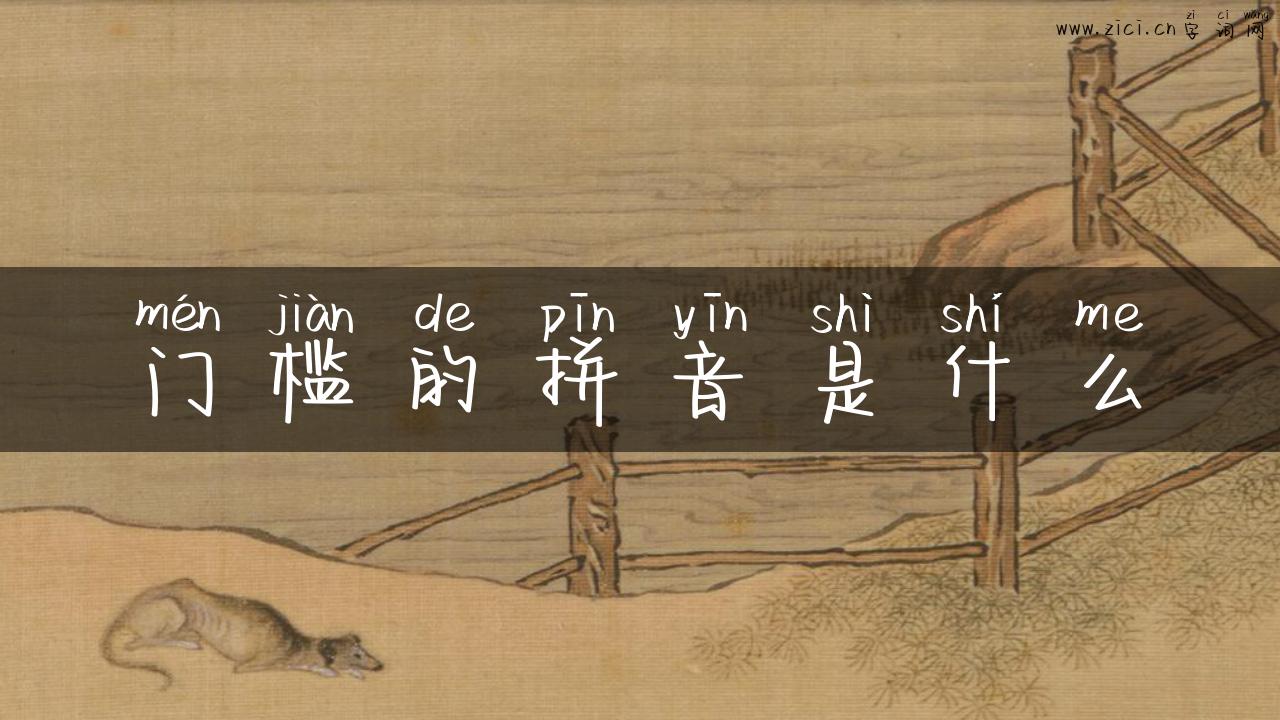 zì cí wǎng
www.zici.cn 字词网
mén jiàn de pīn yīn shì shí me
门槛的拼音是什么